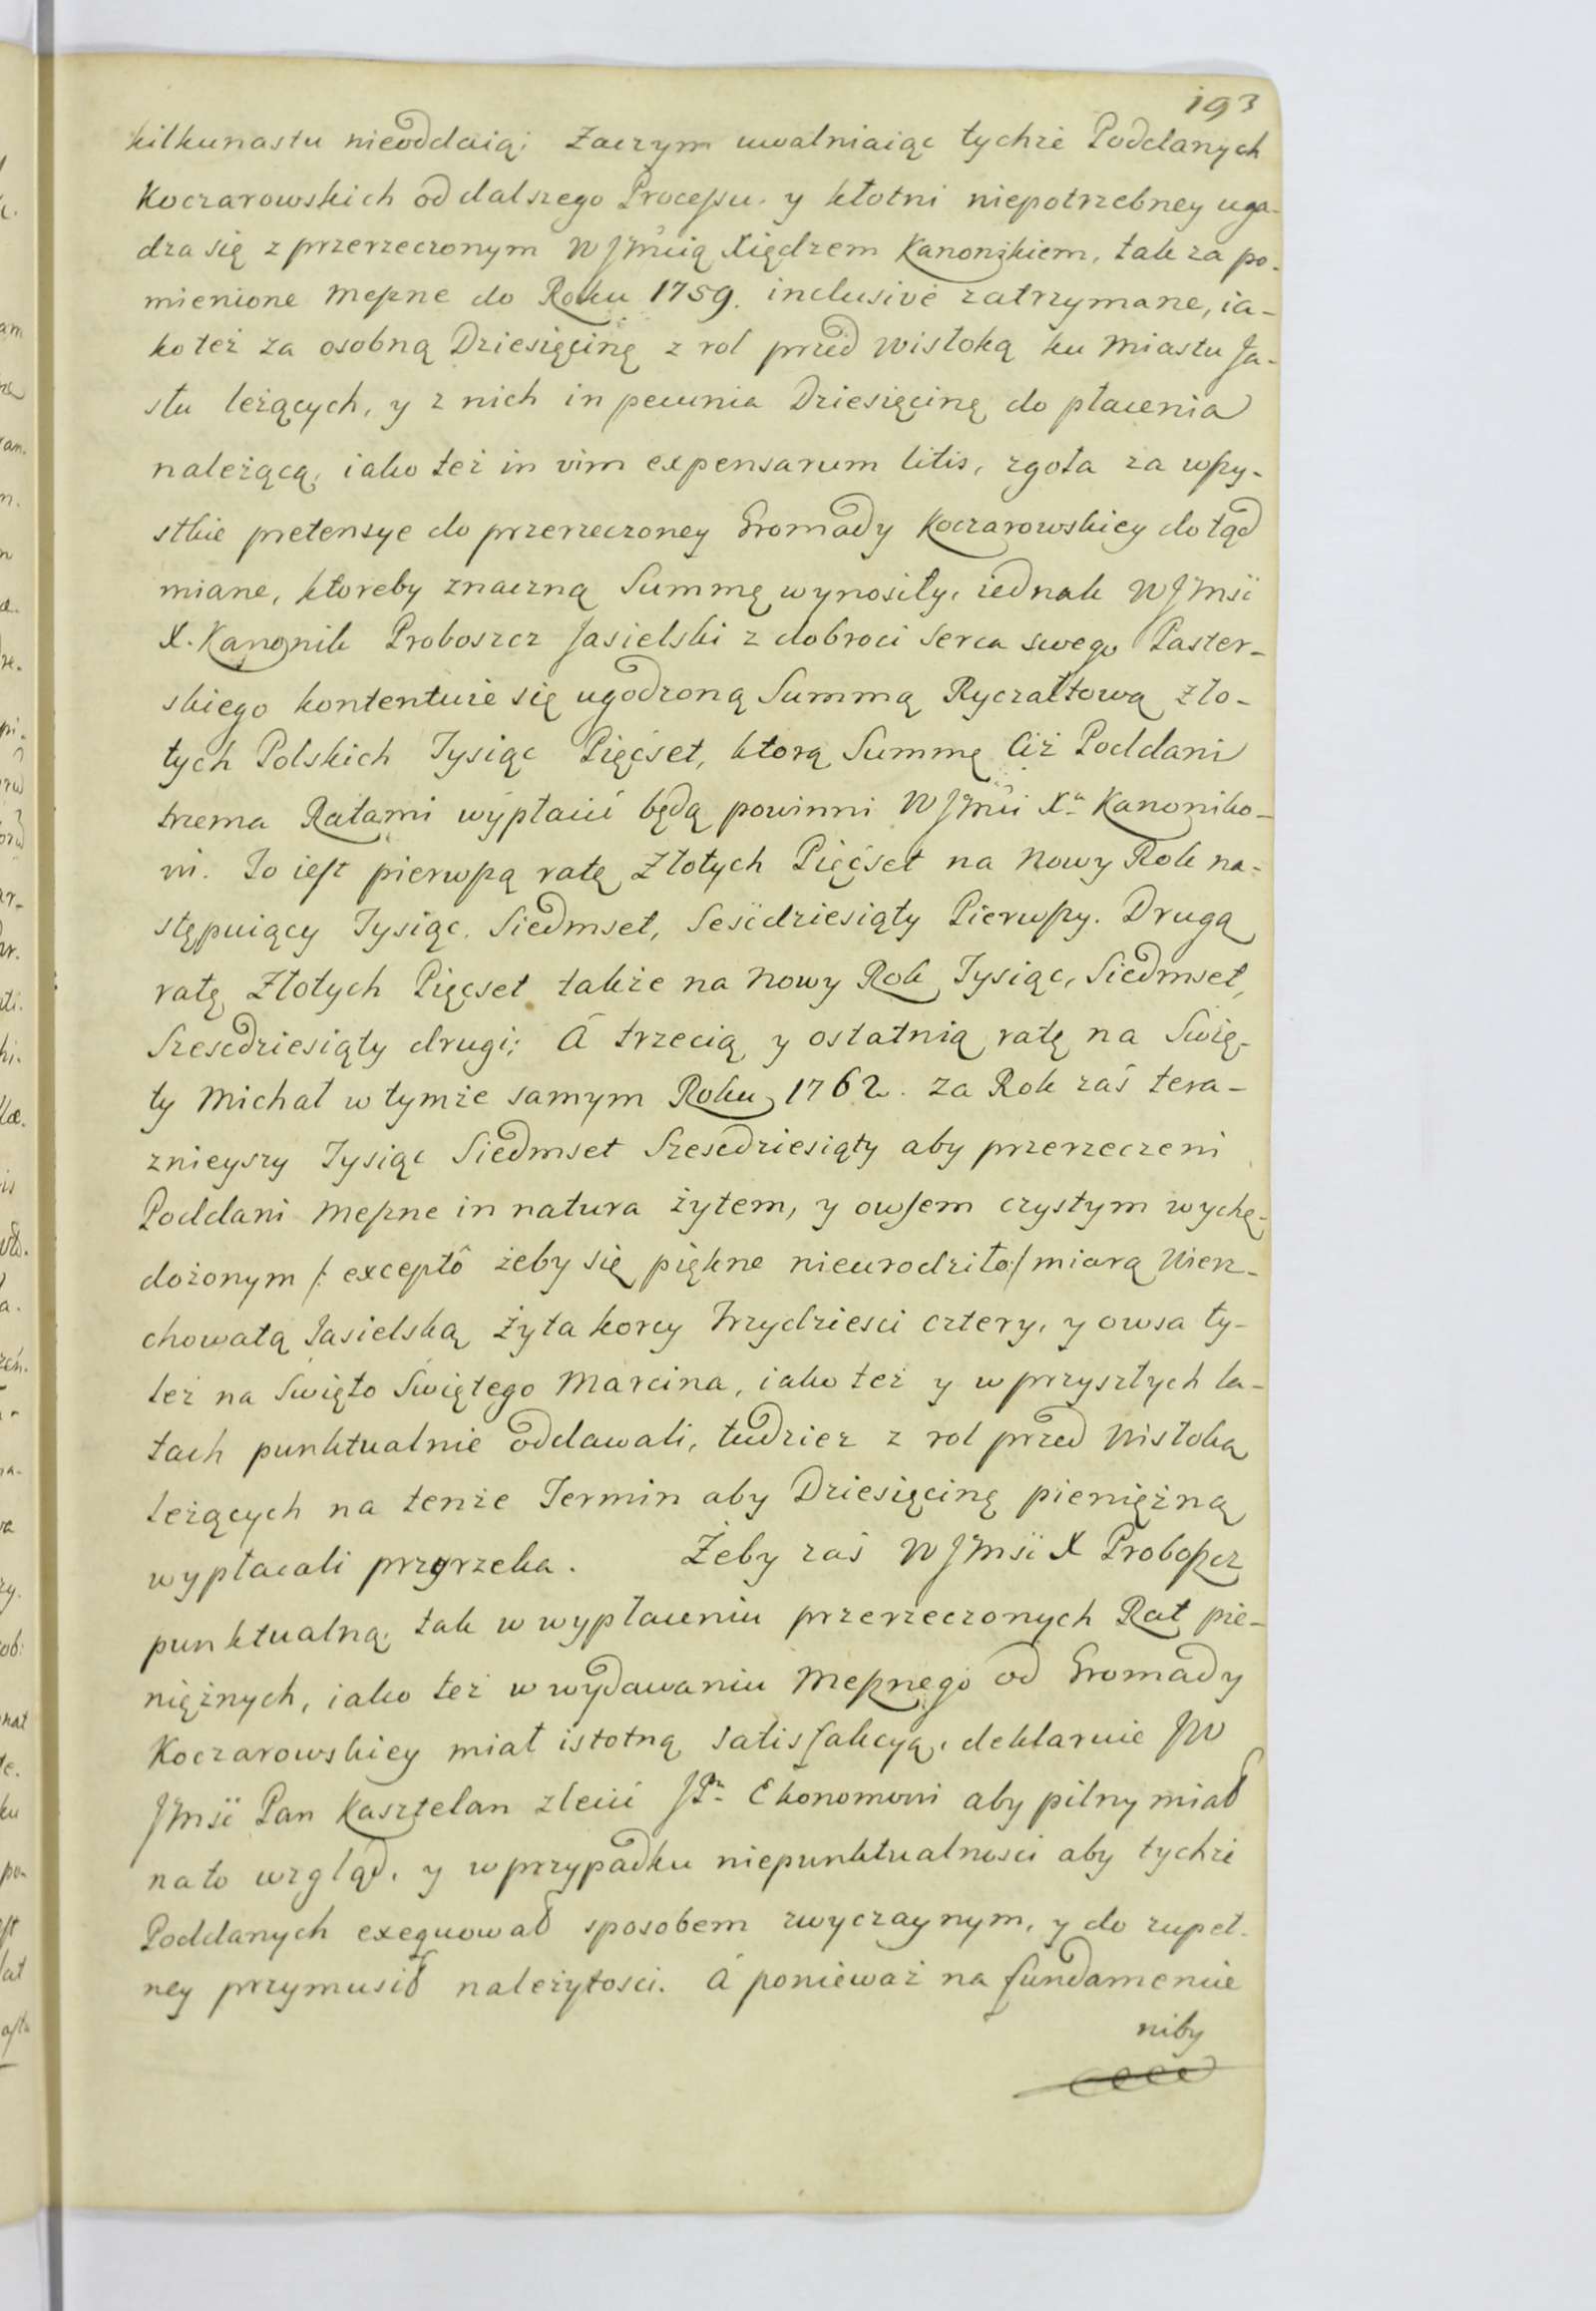 193
kilkunastu nieoddaią; Zaczym uwalniaiąc tychże Poddanych
Koczarowskich od dalszego Processu, y kłotni niepotrzebney uga-
dza się z przerzeczonym WJMcią Xiędzem Kanonikiem, tak za po-
mienione Meszne do Roku 1759. inclusivè zatrzymane, ia-
ko też za osobną Dziesięcinę z rol przed Wisłoką ku Miastu Ja-
słu leżących, y z nich in pecunia Dziesięcinę do płacenia
należącą, iako też in vim expensarum litis, zgoła za wszy-
stkie pretensye do przerzeczoney Gromady Koczarowskiey dotąd
miane, ktoreby znaczną Summę wynosiły, iednak WJMść
X. Kanonik Proboszcz Jasielski z dobroci serca swego Paster-
skiego kontentuie się ugodzoną Summą Ryczałtową Zło-
tych Polskich Tysiąc Pięćset, ktorą Summę Ciż Poddani
trzema Ratami wypłacić będą powinni WJMci Xu Kanoniko-
wi. To iest pierwszą ratę Złotych Pięćset na Nowy Rok na-
stępuiący Tysiąc, Siedmset, Sesćdziesiąty Pierwszy. Drugą
ratę Złotych Pięcset także na Nowy Rok Tysiąc, Siedmset,
Szescdziesiąty drugi; A trzecią y ostatnią ratę na Swię-
ty Michał w tymże samym Roku 1762. Za Rok zaś tera-
znieyszy Tysiąc Siedmset Szescdziesiąty aby przerzeczeni
Poddani Meszne in natura żytem, y owsem czystym wychę-
dożonym /: exceptô żeby się piękne nieurodziło:/ miarą Wierz-
chowatą Jasielską Żyta korcy Trzydziesci cztery, y owsa ty-
leż na Swięto Swiętego Marcina, iako też y w przyszłych la-
tach punktualnie oddawali, tudziez z rol przed Wisłoką
leżących na tenże Termin aby Dziesięcinę pieniężną
wypłacali przyrzeka. Żeby zaś WJMść X Proboszcz
punktualną, tak w wypłaceniu przerzeczonych Rat pie-
niężnych, iako też w wydawaniu Mesznego od Gromady
Koczarowskiey miał istotną satisfakcyą, deklaruie JW
JMść Pan Kasztelan zlecić JPu Ekonomowi aby pilny miał
na to wzgląd, y w przypadku niepunktualnosci aby tychże
Poddanych exequował sposobem zwyczaynym, y do zupeł-
ney przymusił należytosci. A ponieważ na fundamencie
niby